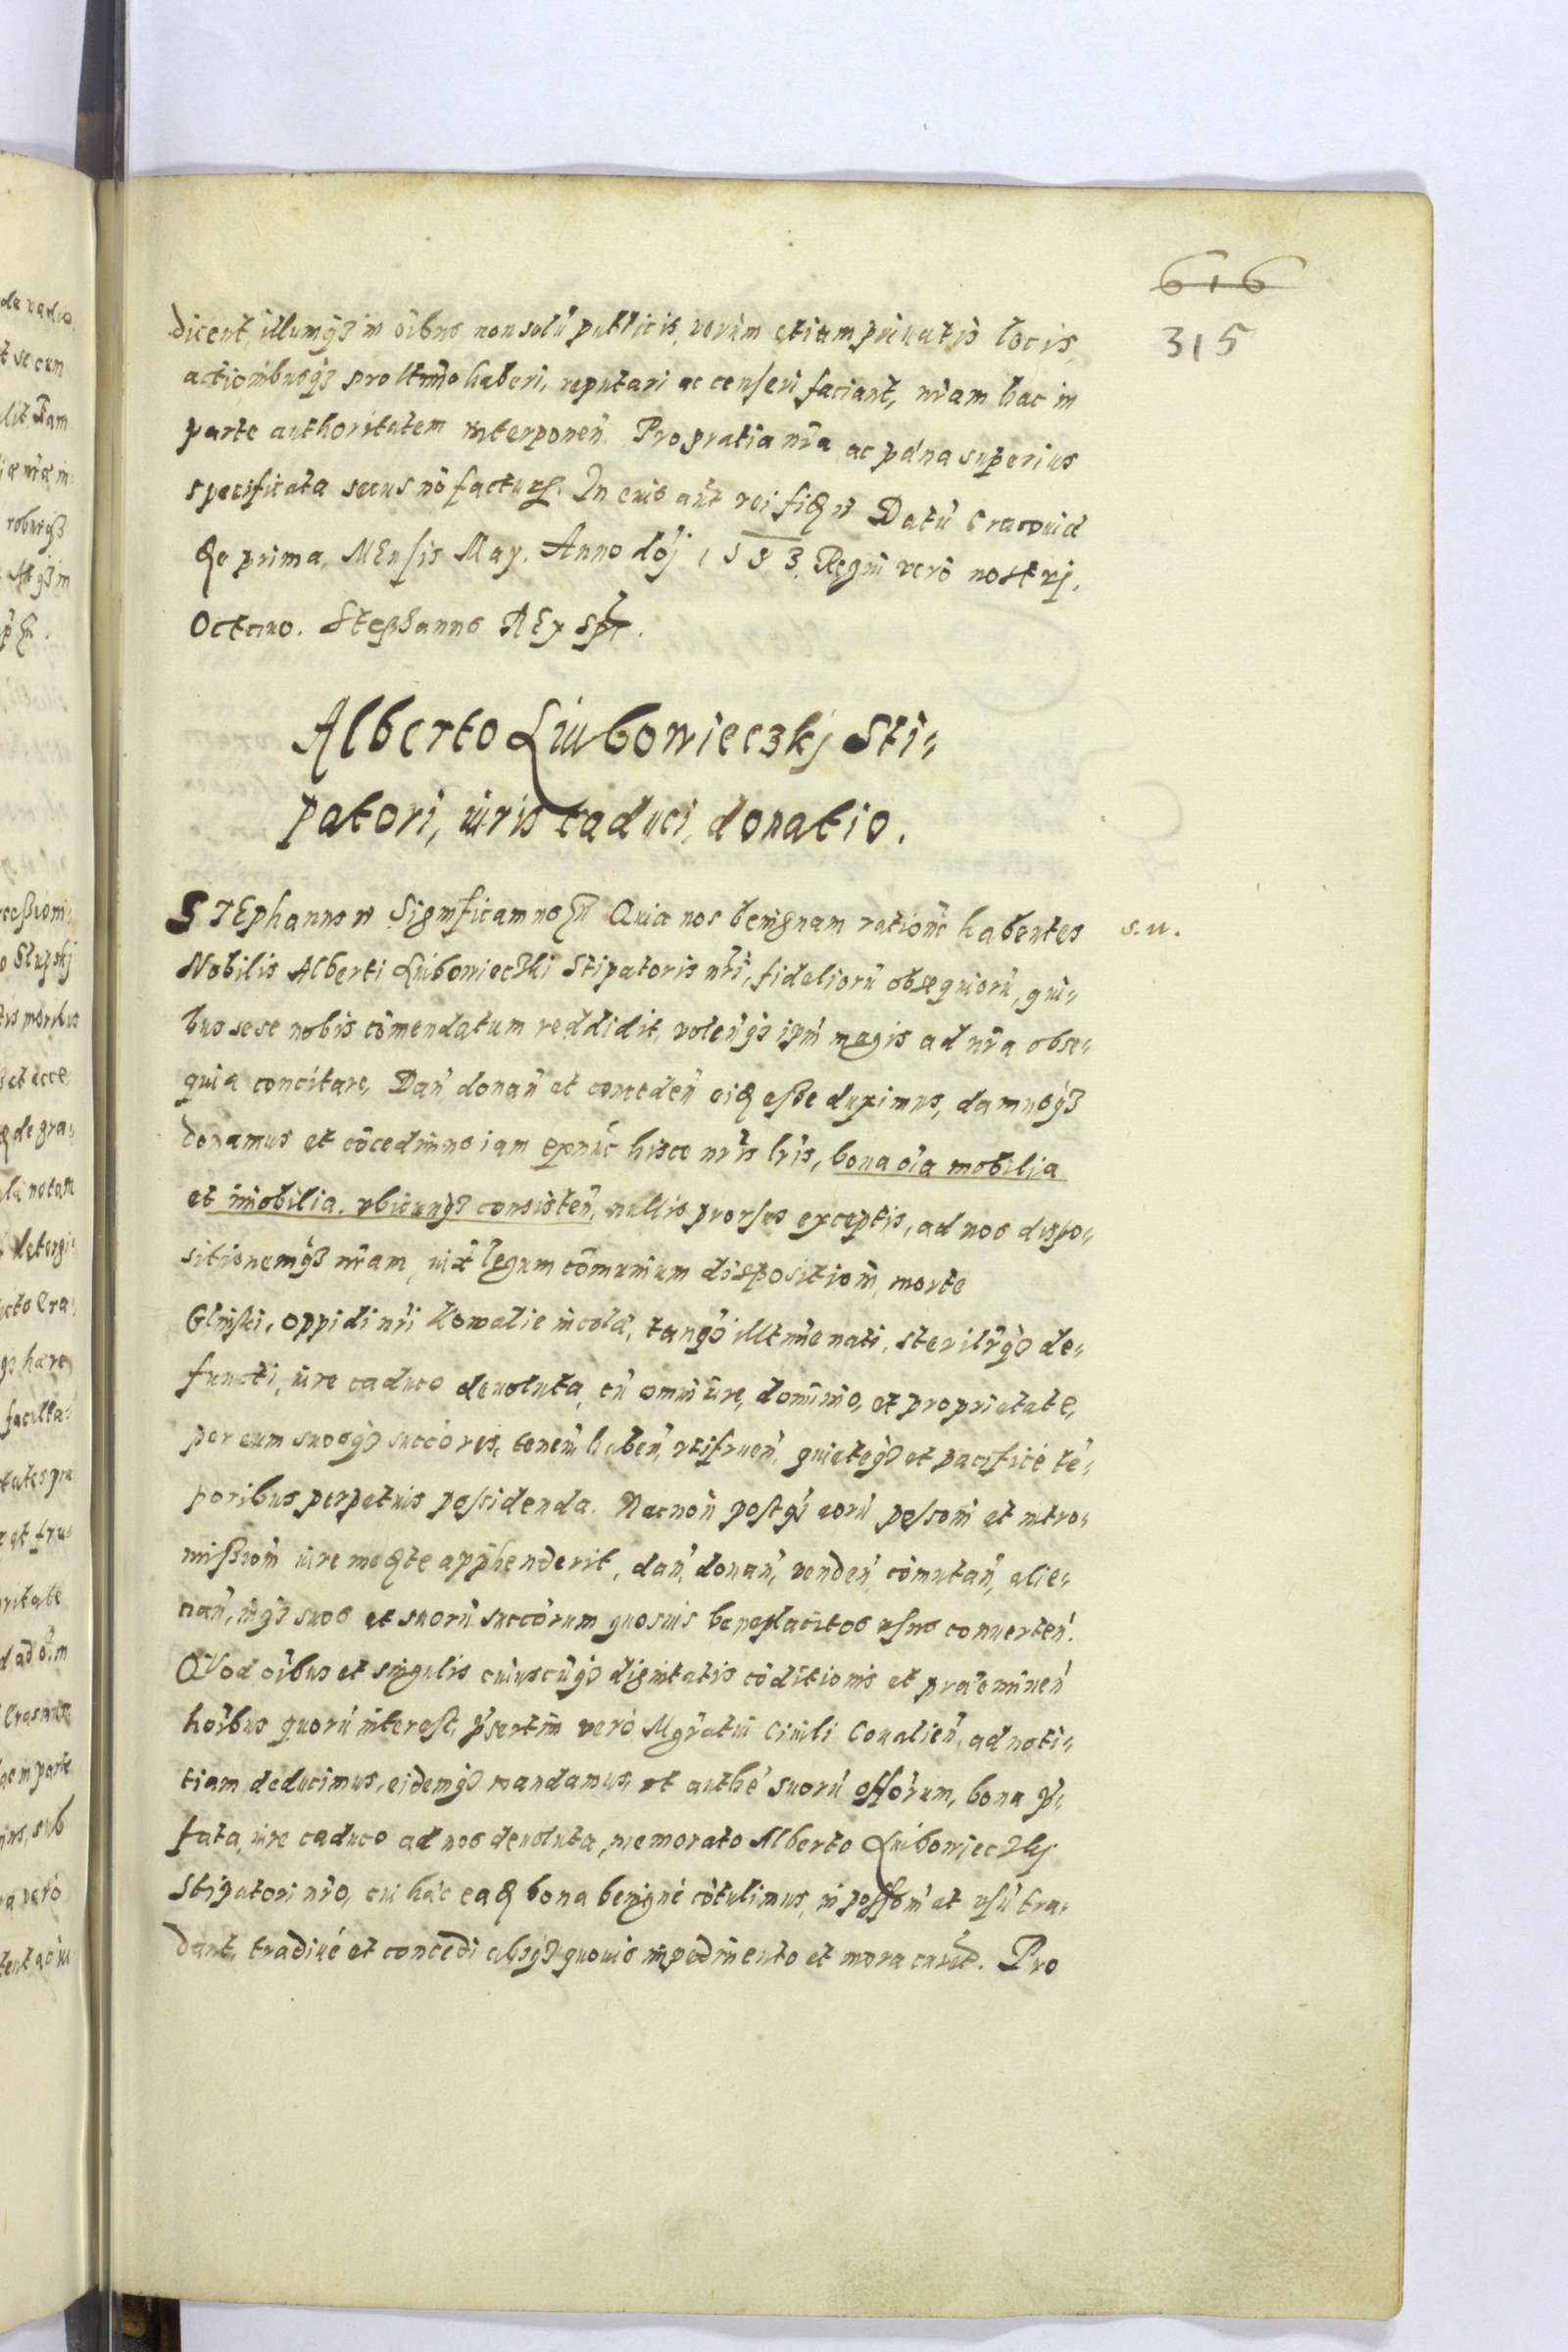 616
315
dicent, illumq3 in oibus non solu publicis, verum etiam priuatis locis,
actionibusq3 pro ltimo haberi, reputari ac censeri faciant, nram hac in
parte authoritatem interponen. Pro gratia nra ac pana superius
specificata secus no factur. In cuius aut rei fidem Datu Cracouia
die prima, MEnsis May. Anno doj 1583. Regni vero nostrj.
Octauo. Stephanus REx spt.
Alberto Liubowieczkj Sti„
patori, iuris caduci, donatio.
STEphanus Significamus Quia nos benignam rationem habentes
s. u.
Nobilis Alberti Liubowieczki Stipatoris nri, fideliorũ obsequiorũ, qui„
bus sese nobis cõmendatum reddidit, volenq3 ipm magis ad nra obse„
quia concitare, Dan donan et conceden eidem esse duximus, damusq3
donamus et cõcedimus iam exnunc hisce nris lris, bona oia mobilia
et imobilia, vbicunq3 consisten, nullis prorsus exceptis, ad nos dispo„
sitionemq3 nram, iuxta legum cõmunium dispositiom, morte
Glinski, oppidi nri Kowalie incola, tanq illtime nati, sterilrq3 de„
functi, iure caduco deuoluta, cũ omni iure, dominio, et proprietate,
per eum suosq3 succores, tenen haben, vtifruen, quieteq3 et pacifice tẽ„
poribus perpetuis possidenda. Necnon postq eorũ possom et intro„
missiom iure mediante apphenderit, dan, donan, venden, comutan, alie„
nan, inq3 suos et suorũ succorum quosuis beneplacitos vsus conuerten.
QVod oibus et singulis cuiuscũq3 dignitatis cõditionis et praeminen
hoibus quorũ interest, psertim vero Mgratui Ciuili Coualien, ad noti„
tiam deducimus, eidemq3 mandamus, vt authe suorũ offorum, bona p„
fata, iure caduco ad nos deuoluta, memorato Alberto Liubowieczkj
Stipatori nro, cui hac eadem bona benigne cõtulimus, in possom et vsũ tra„
dant, tradiue et concedi absq3 quouis impedimento et mora curet. Pro